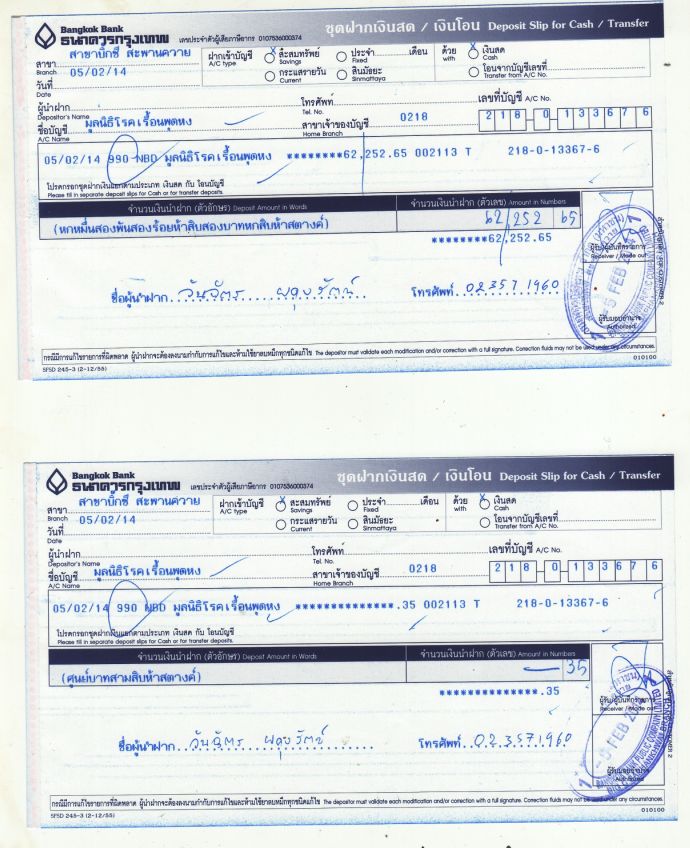 Bangkok Bank
ธนาคารกรุงเทพ เลขประจำตัวผู้เสียภาษีอากร 0107536000374
ชุดฝากเงินสด / เงินโอน Deposit Slip for Cash / Transfer
สาขา สาขาบิ๊กซี สะพานควาย
Branch 05/02/14
วันที่
Date
ฝากเข้าบัญชี A/C type
X สะสมทรัพย์ Savings
ประจำ Fixed เดือน
กระแสรายวัน Current
สินมัธยะ Sinmattaya
ด้วย with
X เงินสด Cash
โอนจากบัญชีเลขที่ Transfer from A/C No.
ผู้นำฝาก
Depositor's Name
โทรศัพท์
Tel. No.
เลขที่บัญชี A/C No.
ชื่อบัญชี มูลนิธิโรคเรื้อนพุดหง
A/C Name
สาขาเจ้าของบัญชี 0218
Home Branch
2 1 8 0 1 3 3 6 7 6
05/02/14 990 NBD มูลนิธิโรคเรื้อนพุดหง ********62,252.65 002113 T 218-0-13367-6
โปรดกรอกชุดฝากเงินแยกตามประเภท เงินสด กับ โอนบัญชี
Please fill in separate deposit slips for Cash or for transfer deposits.
จำนวนเงินนำฝาก (ตัวอักษร) Deposit Amount in Words
จำนวนเงินนำฝาก (ตัวเลข) Amount in Numbers
(หกหมื่นสองพันสองร้อยห้าสิบสองบาทหกสิบห้าสตางค์)
62,252 65
********62,252.65
ผู้รับมอบอำนาจ
Authorized
5 FEB
ชื่อผู้นำฝาก โทรศัพท์ 02 357 1960
กรณีมีการแก้ไขรายการที่ผิดพลาด ผู้นำฝากจะต้องลงนามกำกับการแก้ไขและห้ามใช้ยาลบหมึกทุกชนิดแก้ไข The depositor must validate each modification and/or correction with a full signature. Correction fluids may not be used under any circumstances.
SFSD 245-3 (2-12/55)
010100
Bangkok Bank
ธนาคารกรุงเทพ เลขประจำตัวผู้เสียภาษีอากร 0107536000374
ชุดฝากเงินสด / เงินโอน Deposit Slip for Cash / Transfer
สาขา สาขาบิ๊กซี สะพานควาย
Branch 05/02/14
วันที่
Date
ฝากเข้าบัญชี A/C type
X สะสมทรัพย์ Savings
ประจำ Fixed เดือน
กระแสรายวัน Current
สินมัธยะ Sinmattaya
ด้วย with
X เงินสด Cash
โอนจากบัญชีเลขที่ Transfer from A/C No.
ผู้นำฝาก
Depositor's Name
โทรศัพท์
Tel. No.
เลขที่บัญชี A/C No.
ชื่อบัญชี มูลนิธิโรคเรื้อนพุดหง
A/C Name
สาขาเจ้าของบัญชี 0218
Home Branch
2 1 8 0 1 3 3 6 7 6
05/02/14 990 NBD มูลนิธิโรคเรื้อนพุดหง **************.35 002113 T 218-0-13367-6
โปรดกรอกชุดฝากเงินแยกตามประเภท เงินสด กับ โอนบัญชี
Please fill in separate deposit slips for Cash or for transfer deposits.
จำนวนเงินนำฝาก (ตัวอักษร) Deposit Amount in Words
จำนวนเงินนำฝาก (ตัวเลข) Amount in Numbers
(ศูนย์บาทสามสิบห้าสตางค์)
35
**************.35
ผู้รับมอบอำนาจ
Authorized
5 FEB
ชื่อผู้นำฝาก โทรศัพท์ 02 357 1960
กรณีมีการแก้ไขรายการที่ผิดพลาด ผู้นำฝากจะต้องลงนามกำกับการแก้ไขและห้ามใช้ยาลบหมึกทุกชนิดแก้ไข The depositor must validate each modification and/or correction with a full signature. Correction fluids may not be used under any circumstances.
SFSD 245-3 (2-12/55)
010100